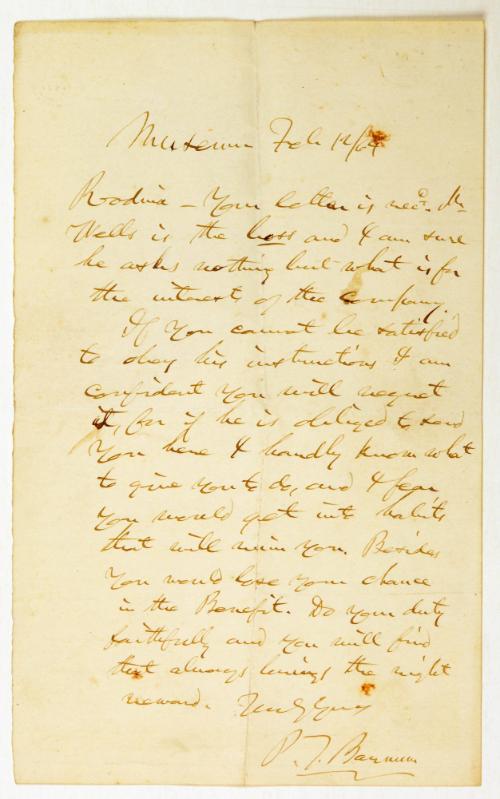 Museum Feb 12/64
Rodnia - Your letter is recd. Mr
Wells is the boss and I am sure
he asks nothing but what is for
the interest of the company.
If you cannot be satisfied
to obey his instructions I am
confident you will regret
it, for if he is obliged to send
you here I hardly know what
to give you to do, and I fear
you would get into habits
that will ruin you. Besides
you would lose your chance
in the Benefit. Do your duty
faithfully and you will find
that always brings the right
reward. Truly yours
P. T. Barnum